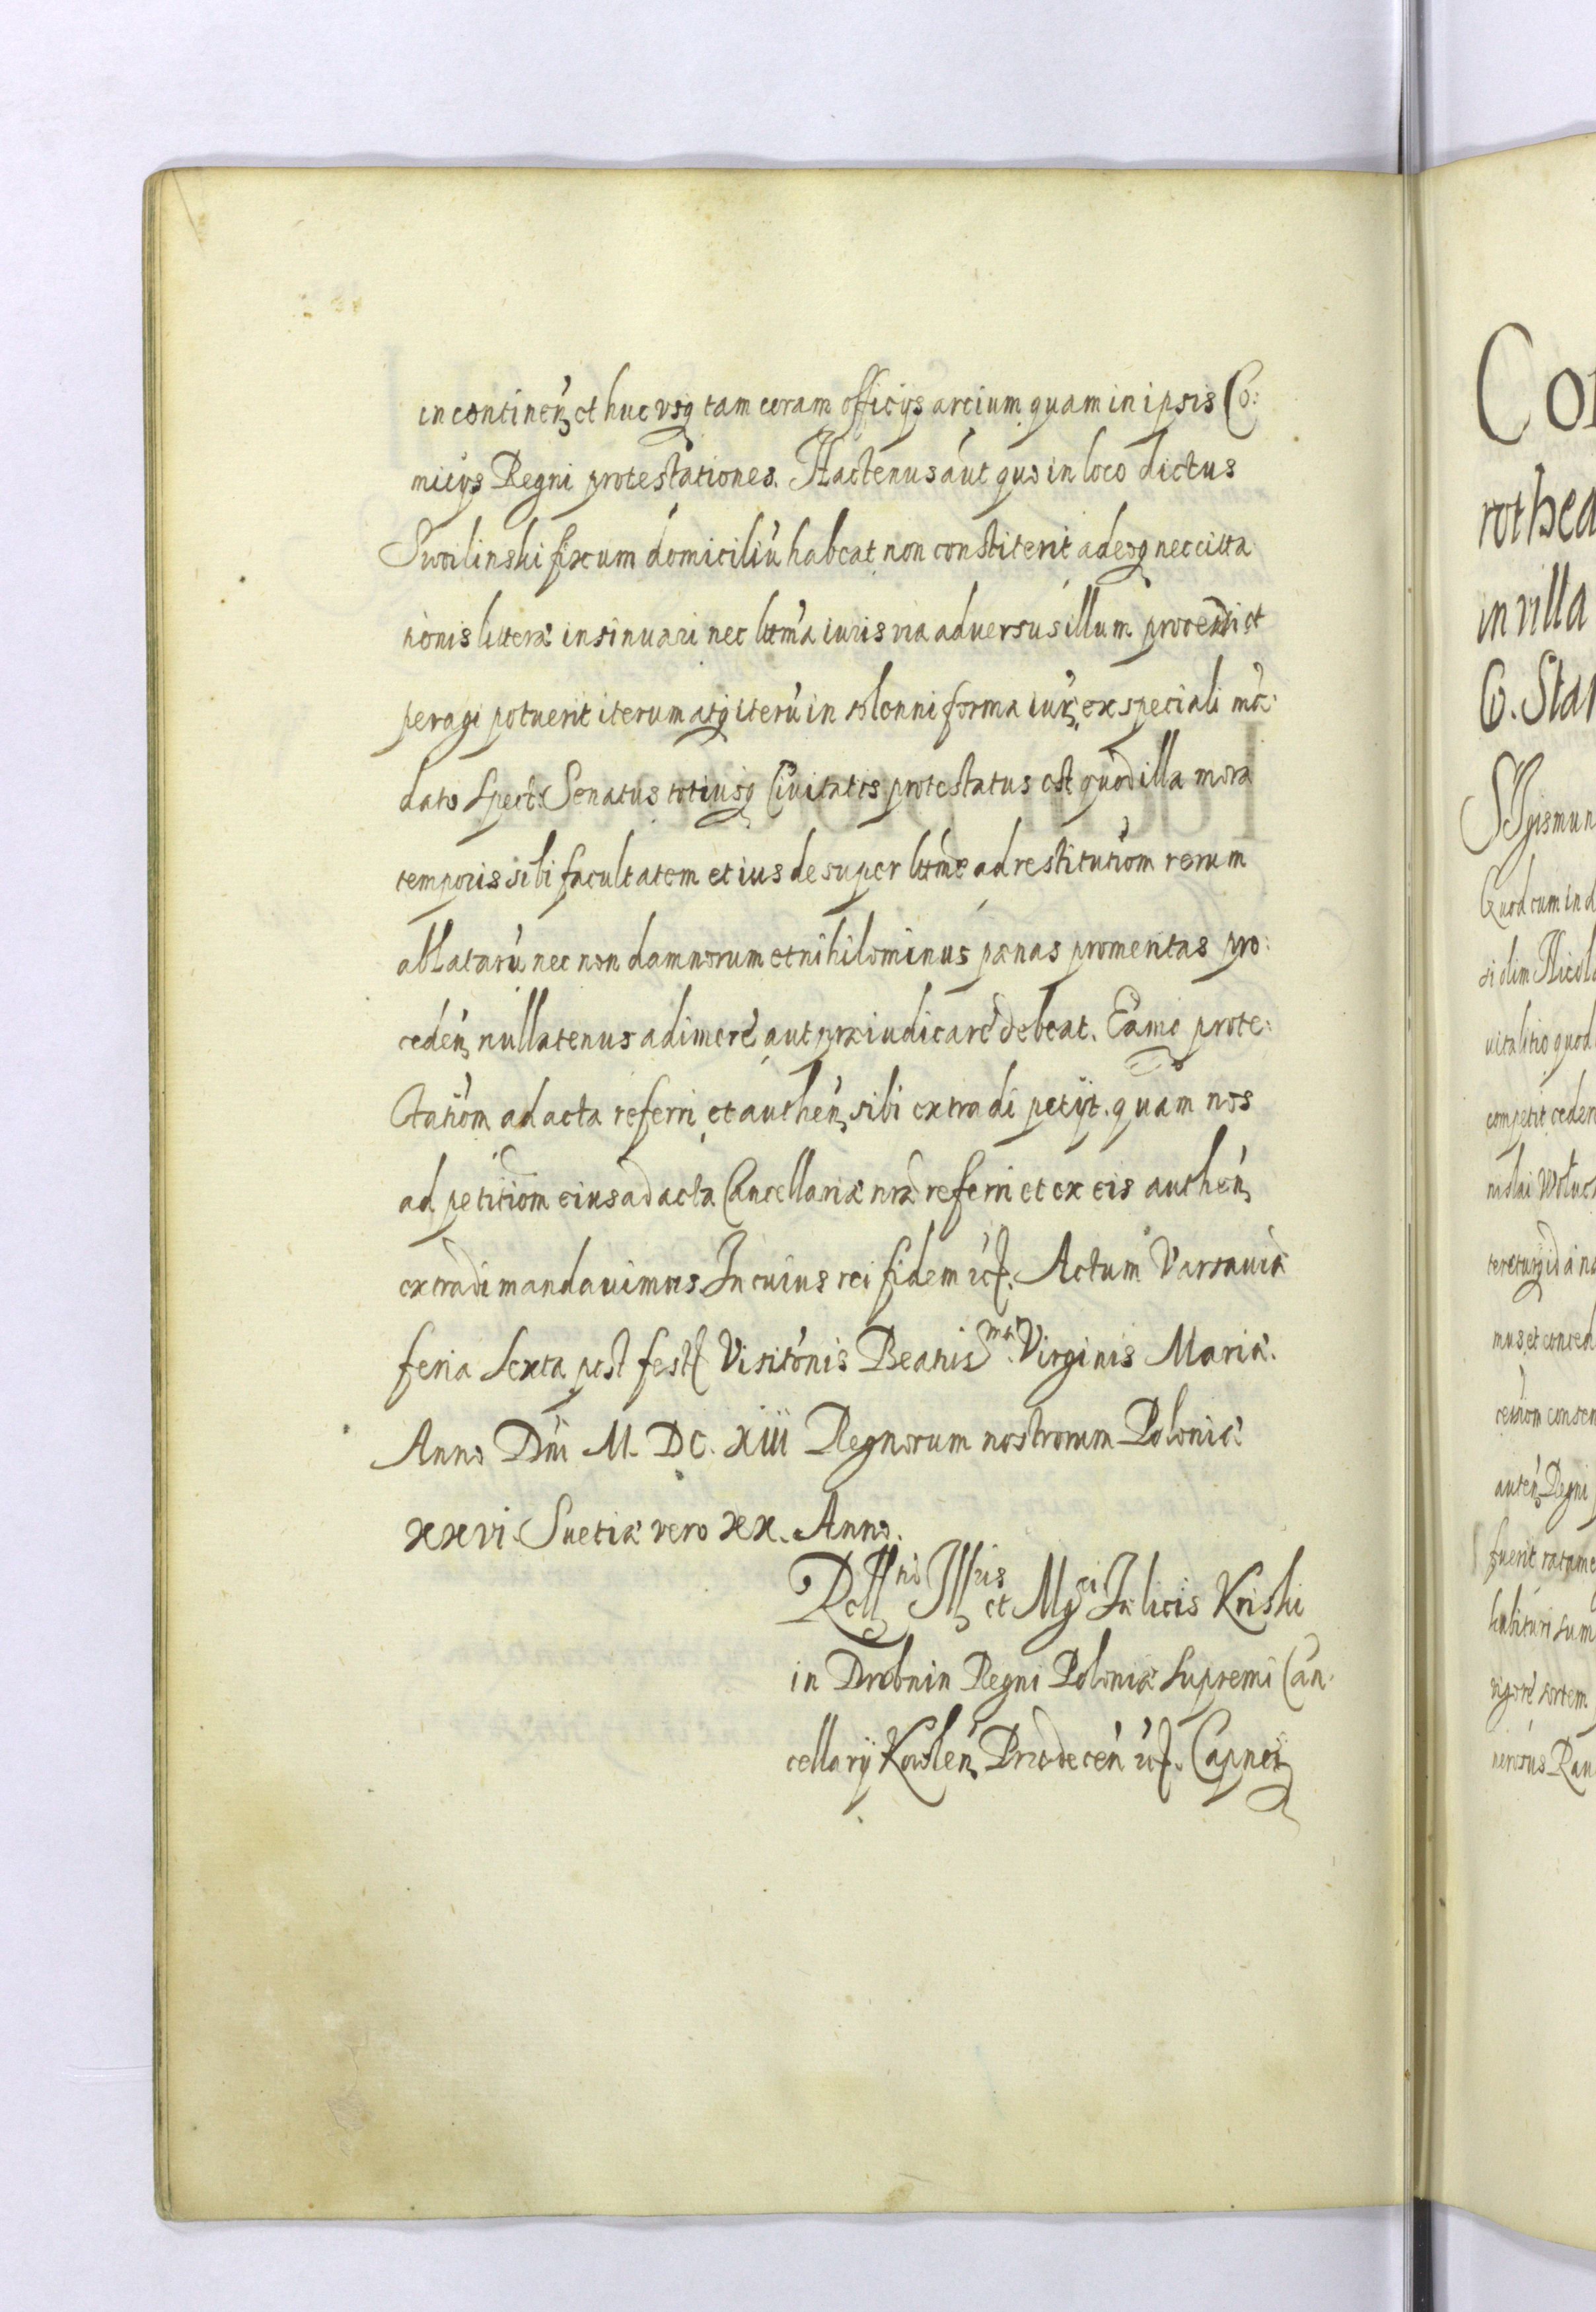 incontineñ et huc usq tam coram officiis arcium quam in ipsis Co:
mitiis Regni protestationes. Hactenus aut quo in loco dictus
Swoilinski fixum domiciliũ habeat non constiterit adeoq nec citta
tionis litteræ insinuari nec lttma iuris via adversus illum procedi et
peragi potuerit iterum atq iterũ in solenni forma iuris ex speciali mã:
dato Spect: Senatus totiusq Civitatis protestatus est quod illa mora
temporis sibi facultatem et ius desuper lttme ad restitutiom rerum
ablatarũ nec non damnorum et nihilominus pænas promeritas pro:
cedeñ nullatenus adimere aut præiudicare debeat. Eamq prote:
statiom ad acta referri et autheñ sibi extradi petiit. quam nos
ad petitiom eius ad acta Cancellariæ nræ referri et ex eis autheñ
extradi mandauimus. In cuius rei fidem etc. Actum Varsauiæ
feria sexta post fest Visitonis Beatis ma Virginis Mariæ.
Anno Dni M. DC. XIII Regnorum nostrorum Poloniæ
XXVI. Suetiæ vero XX. Anno.
Rell nio Ill ris et Mgci Fælicis Kriski
in Drobnin Regni Poloniæ supremi Can:
cellarii Kowleñ etc. Capnei
Co
rothea
in villa
G. Sta
Quod cum in d
si olim Nicol
vitalitio quod
competit ceden
mus et conced
cessiom consen
auteñ Regni
habituri sum
nerosus Ran